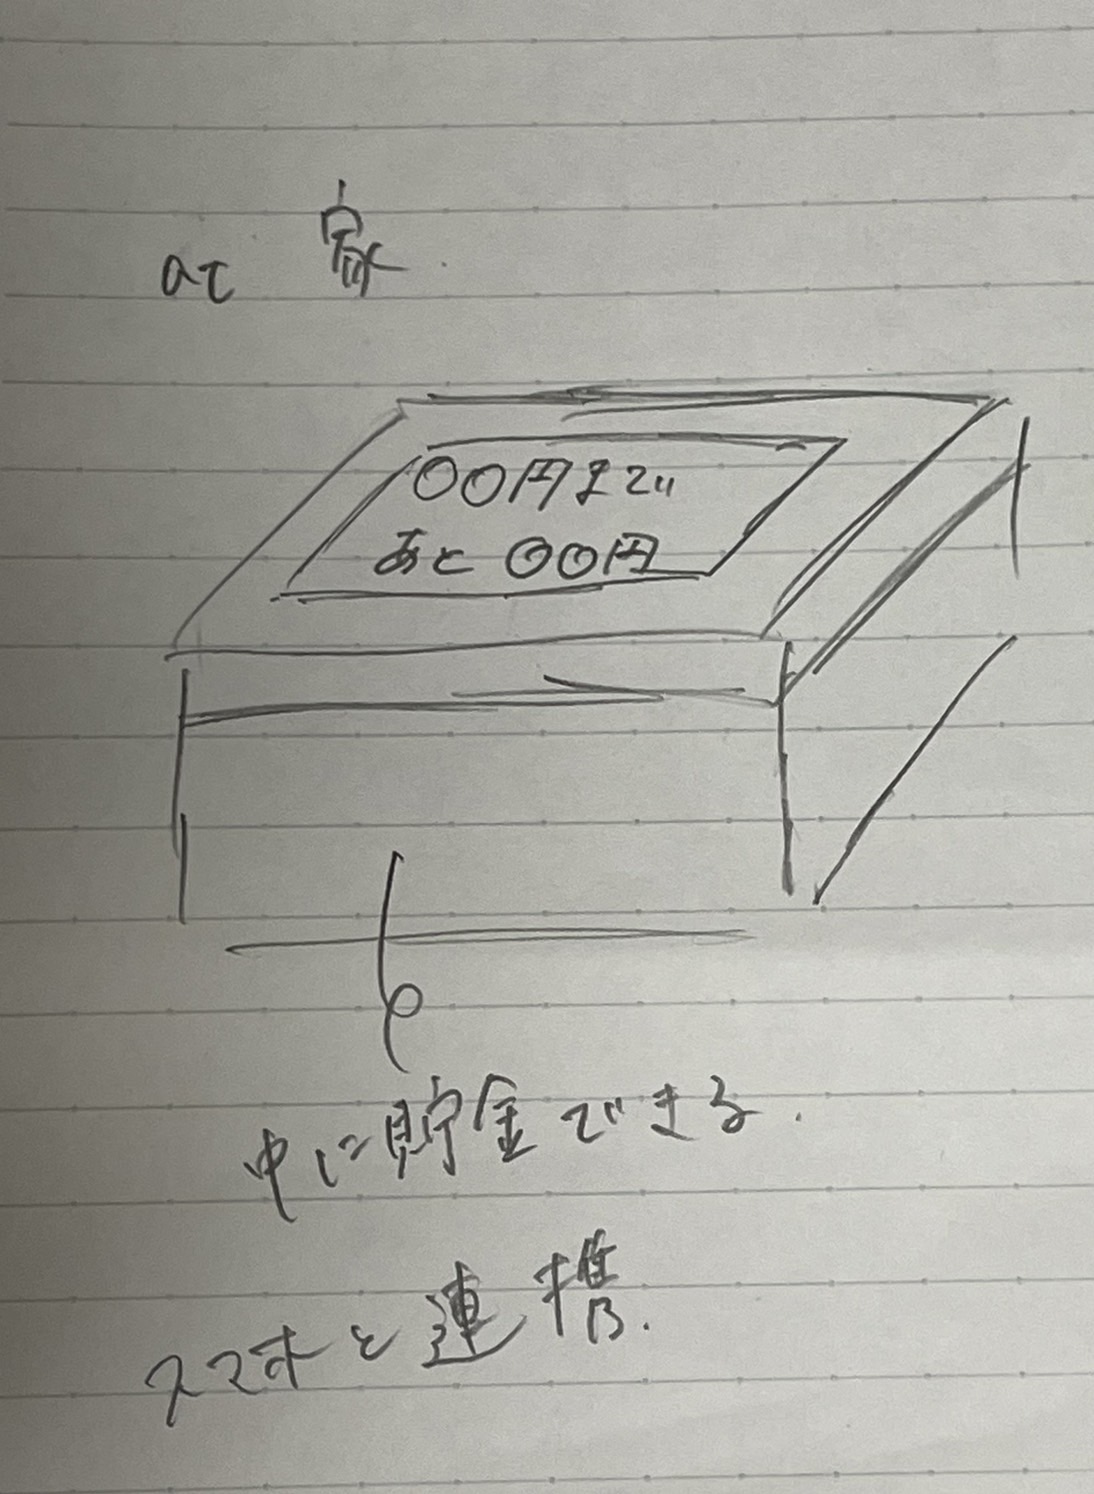 at 家.
〇〇円まで
あと 〇〇円
中に貯金できる.
スマホと連携.